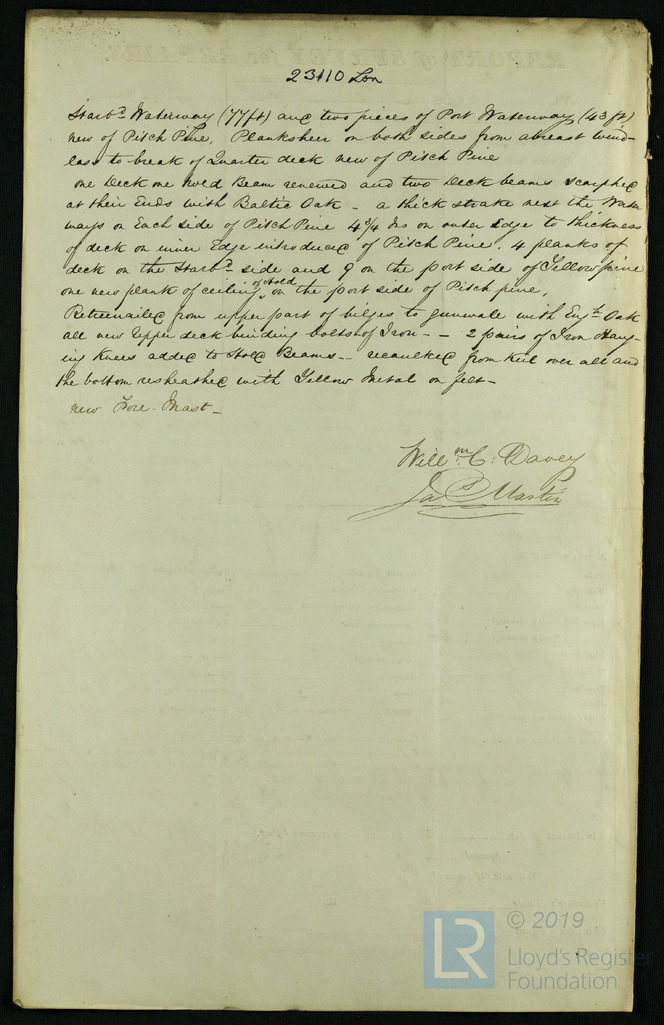 23110 Lon
Starbd Waterway (77ft) and two pieces of Port Waterway (43 ft)
new of Pitch Pine, Planksheer on both sides from abreast Wind-
lass to break of Quarter deck new of Pitch Pine
one Deck one hold Beam renewed and two Deck beams scarphed
at their Ends with Baltic Oak - a thick strake next the Water
ways on Each side of Pitch Pine 4 3/4 Ins on outer Edge to thickness
of deck on inner Edge introduced of Pitch Pine. 4 planks of
deck on the Starbd side and 9 on the port side of Yellow pine
one new plank of ceiling of Hold on the port side of Pitch pine,
Retreenailed from upper part of bilges to gunwale with Engh Oak
all new Upper deck binding bolts of Iron - - 2 pairs of Iron Hang-
ing Knees added to Hold Beams - recaulked from Keel over all and
the bottom resheathed with Yellow Metal on felt -
new Fore Mast -
Willm C: Davey
Jas P Martin
LR
© 2019
Lloyd's Register
Foundation